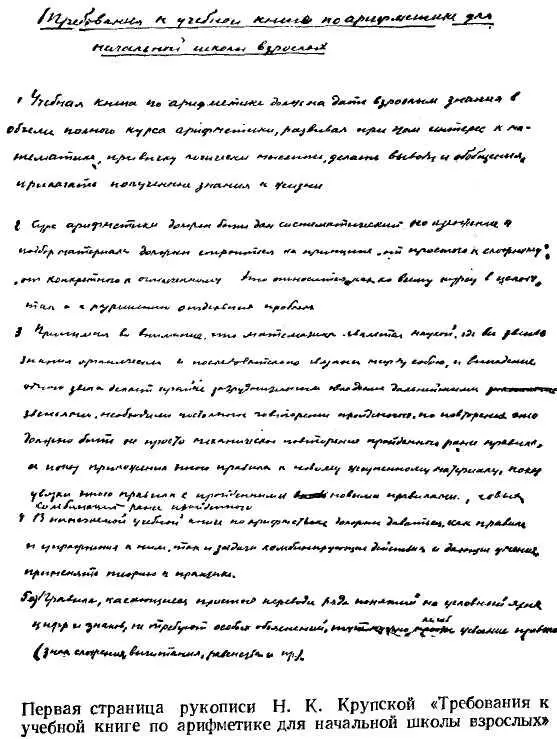 Требования к учебной книге по арифметике для
начальной школы взрослых
1 Учебная книга по арифметике должна дать взрослым знания в
объеме полного курса арифметики, развивая при этом интерес к ма-
тематике, привычку логически мыслить, делать выводы и обобщения,
прилагать полученные знания к жизни
2 Курс арифметики должен быть дан систематический изложение и
подбор материала должны строиться на принципе „от простого к сложному",
„от конкретного к отвлеченному" это относится как ко всему курсу в целом
так и к отдельным проблемам
3 Принимая во внимание, что математика является наукой, где все звенья
знания органически и последовательно связаны между собою, и выпадение
одного звена делает крайне затруднительным овладение дальнейшими
звеньями, необходимо постоянное повторение пройденного, но повторение это
должно быть не просто механическое повторение пройденного ранее правила,
а показ приложения этого правила к новому жизненному материалу, показ
увязки этого правила с пройденными новыми правилами,
комбинация ранее пройденного
4 В учебной книге по арифметике должны даваться, как правила
и упражнения к ним, так и задачи комбинирующие действия и дающие умение
применять теорию к практике.
5 а) Правила, касающиеся простого перевода ряда понятий на условный язык
цифр и знаков, не требуют особых объяснений, усвоение
(знак сложения вычитания, равенства и пр.)
Первая страница рукописи Н. К. Крупской «Требования к
учебной книге по арифметике для начальной школы взрослых»